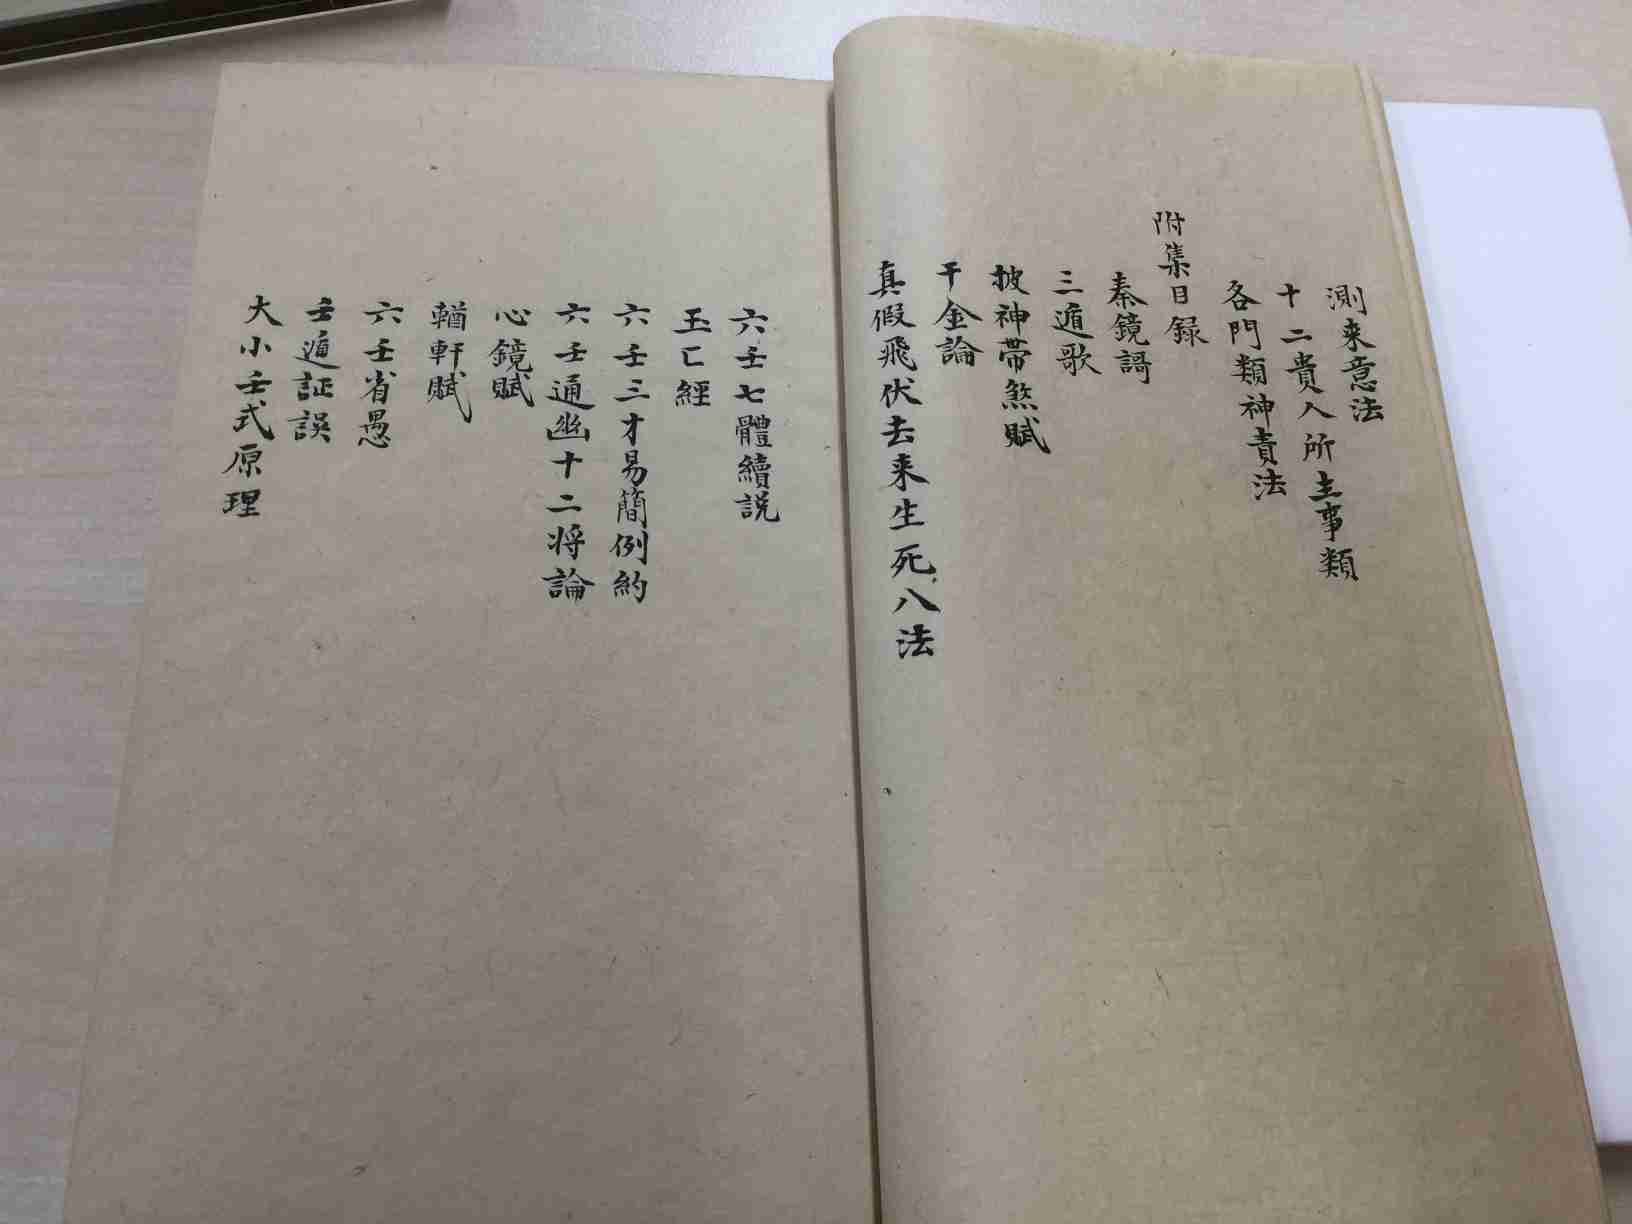 測来意法
十二貴人所主事類
各門類神責法
附集目録
秦鏡謌
三遁歌
披神帯煞賦
千金論
真假飛伏去来生死八法
六壬七體續説
玉匸經
六壬三才易簡例約
六壬通幽十二将論
心鏡賦
輶軒賦
六壬省愚
壬遁証誤
大小壬式原理